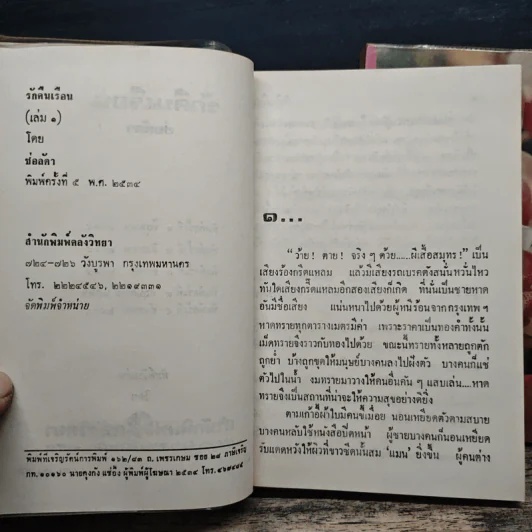 รักคืนเรือน
(เล่ม ๑)
โดย
ช่อลัดา
พิมพ์ครั้งที่ ๕ พ.ศ. ๒๕๓๔
สำนักพิมพ์คลังวิทยา
๗๒๔-๗๒๖ วังบูรพา กรุงเทพมหานคร
โทร. ๒๒๒๔๕๔๖, ๒๒๑๙๓๓๑
จัดพิมพ์จำหน่าย
พิมพ์ที่เจริญรัตน์การพิมพ์ ๑๖๒/๔๓ ถ. เพชรเกษม ซอย ๒๙ ภาษีเจริญ
กท. ๑๐๑๖๐ นายคุงกัง แซ่อึ้ง ผู้พิมพ์ผู้โฆษณา ๒๕๓๔ โทร.
๑...
“ว้าย! ตาย! จริง ๆ ด้วย.....ผีเสื้อสมุทร!” เป็น
เสียงร้องกรี๊ดแหลม แล้วมีเสียงรถเบรคดังสนั่นหวั่นไหว
ทันใดเสียงกรี๊ดแหลมอีกสองเสียงก็เกิด ที่นั่นเป็นชายหาด
อันมีชื่อเสียง แน่นหนาไปด้วยผู้หนีร้อนจากกรุงเทพ ฯ
หาดทรายทุกตารางเมตรมีค่า เพราะราคาเป็นทองคำทั้งนั้น
เม็ดทรายจึงราวกับทองไปด้วย ขณะนี้ทรายทั้งหลายถูกตัก
ถูกย่ำ บ้างถูกขุดให้มนุษย์บางคนลงไปฝังตัว บางคนก็แช่
ตัวไปในน้ำ งมทรายมาวางให้คนอื่นคัน ๆ แสบเล่น....หาด
ทรายจึงเป็นสถานที่น่าจะให้ความสุขอย่างดียิ่ง
ตามเก้าอี้ผ้าใบมีคนขี้เมื่อย นอนเหยียดตัวตามสบาย
บางคนหลับใช้หนังสือปิดหน้า ผู้ชายบางคนก็นอนเหยียด
รับแดดหวังให้ผิวที่ขาวซีดนั้นสม “แมน” ยิ่งขึ้น ผู้คนต่าง